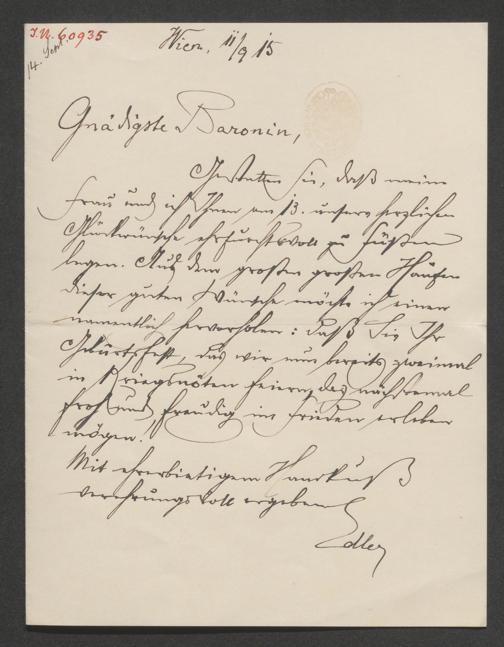 I.N. 60935
14. Sept.
Wien, 11/9 15
Gnädigste Baronin,
Gestatten Sie, daß meine
Frau und ich Ihnen am 13. unsere herzlichen
Glückwünsche ehrfurchtsvoll zu Füßen
legen. Aus dem großen großen Haufen
dieser guten Wünsche möchte ich einen
namentlich hervorholen: daß Sie Ihr
Geburtsfest, das wir nun bereits zweimal
in Kriegsnöten feiern, das nächstemal
froh und freudig im Frieden erleben
mögen.
Mit ehrerbietigem Handkuß
verehrungsvoll ergeben
Edler